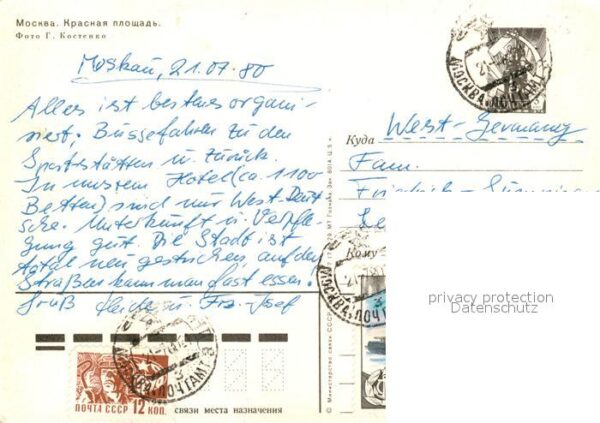 Москва. Красная площадь.
Фото Г. Костенко
Moskau, 21.07.80
Alles ist bestens organi-
siert, Bussefahren zu den
Sportstätten u. zurück.
In unserem Hotel (ca. 1100
Betten) sind nur West-Deut-
sche. Unterkunft u. Verpfle-
gung gut. Die Stadt ist
total neu gestrichen, auf den
Straßen kann man fast essen.
Gruß u. Frz.-Josef
Куда West-Germany
Fam.
Кому
МОСКВА ПОЧТАМТ
МОСКВА ПОЧТАМТ
МОСКВА ПОЧТАМТ
ПОЧТА СССР 12 КОП.
связи места назначения
Министерство связи СССР
privacy protection
Datenschutz